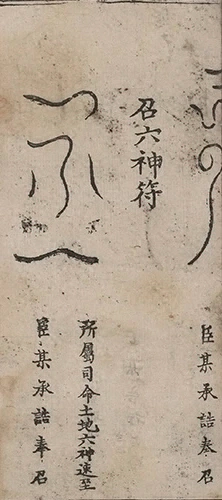 臣某承誥奉召
召六神符
所屬司命土地六神速至
臣某承誥奉召